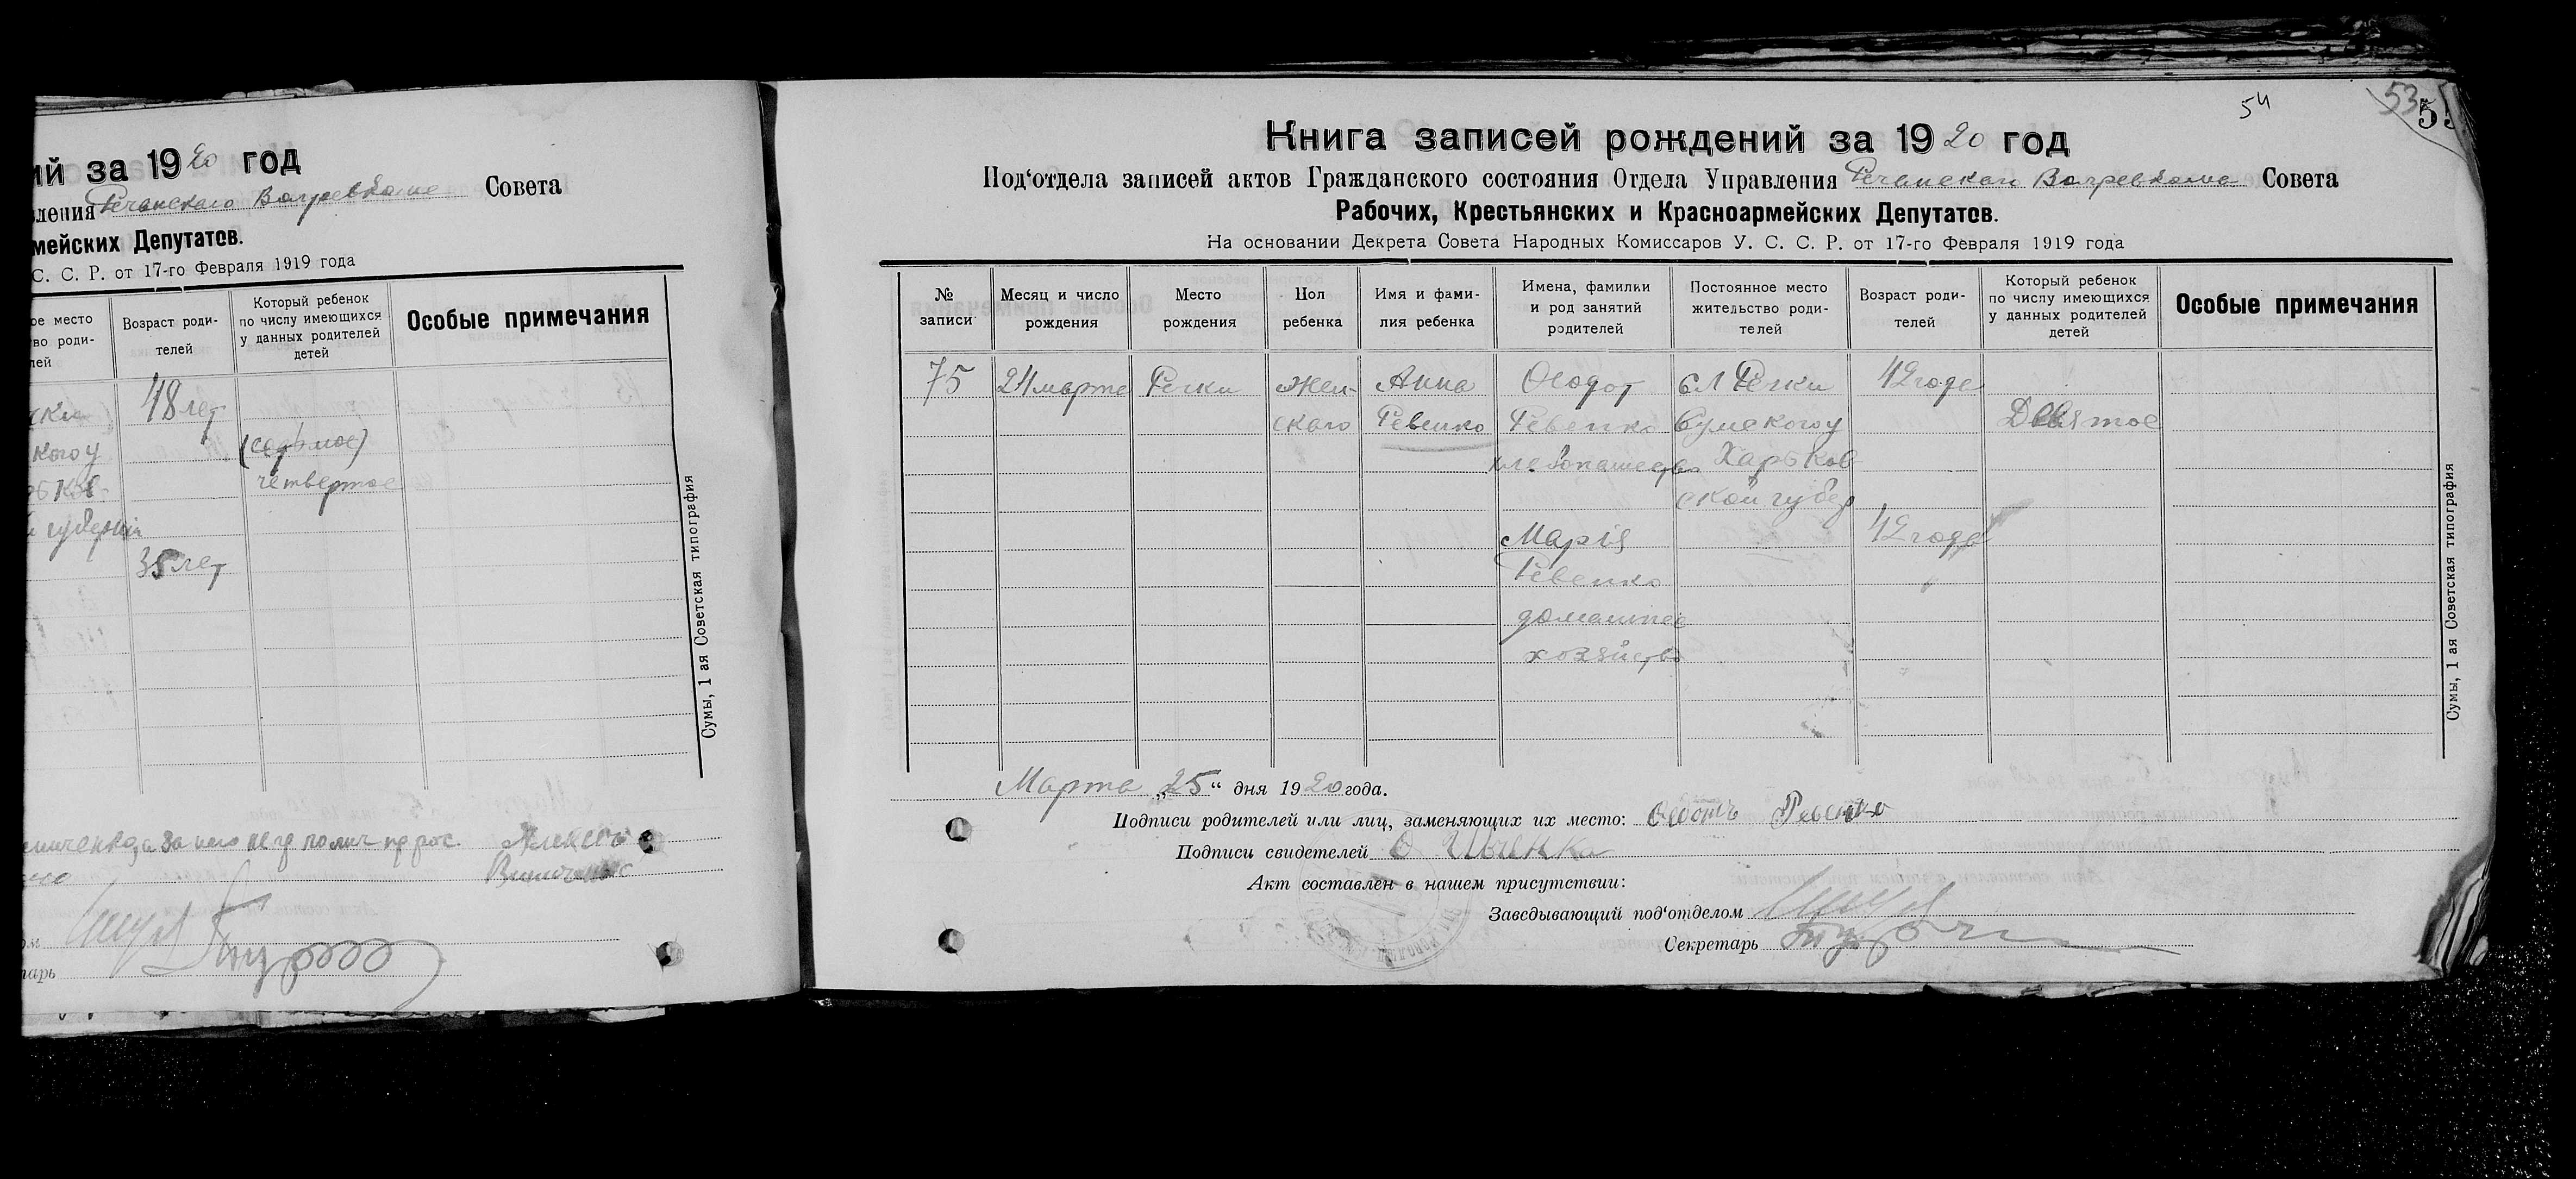 ий за 1920 год
вления Речанскаго Волревкома Совета
мейских Депутатов.
С. С. Р. от 17-го Февраля 1919 года
ое место
во роди-
лей
Возраст роди-
телей
Который ребенок
по числу имеющихся
у данных родителей
детей
Особые примечания
ски 48 лет
кого у (седьмое)
рьков- четвертое
й губернии
35 лет
Сумы, 1 ая Советская типография
Алексей
ом
тарь
54
53
Книга записей рождений за 1920 год
Под‘отдела записей актов Гражданского состояния Отдела Управления Речанскаго Волревкома Совета
Рабочих, Крестьянских и Красноармейских Депутатов.
На основании Декрета Совета Народных Комиссаров У. С. С. Р. от 17-го Февраля 1919 года
№
записи
Месяц и число
рождения
Место
рождения
Пол
ребенка
Имя и фами-
лия ребенка
Имена, фамилии
и род занятий
родителей
Постоянное место
жительство роди-
телей
Возраст роди-
телей
Который ребенок
по числу имеющихся
у данных родителей
детей
Особые примечания
75 24 марта Речки Жен- Анна Феодот сл Речки 42 года
скаго Ревенко Ревенко Сумского у Девятое
хлебопашество Харьков
ской губер
Мария 42 года
Ревенко
домашнее
хозяйство
Сумы, 1 ая Советская типография
Марта „25“ дня 1920 года.
Подписи родителей или лиц, заменяющих их место: Ревенко
Подписи свидетелей
Акт составлен в нашем присутствии:
Заведывающий под‘отделом
Секретарь